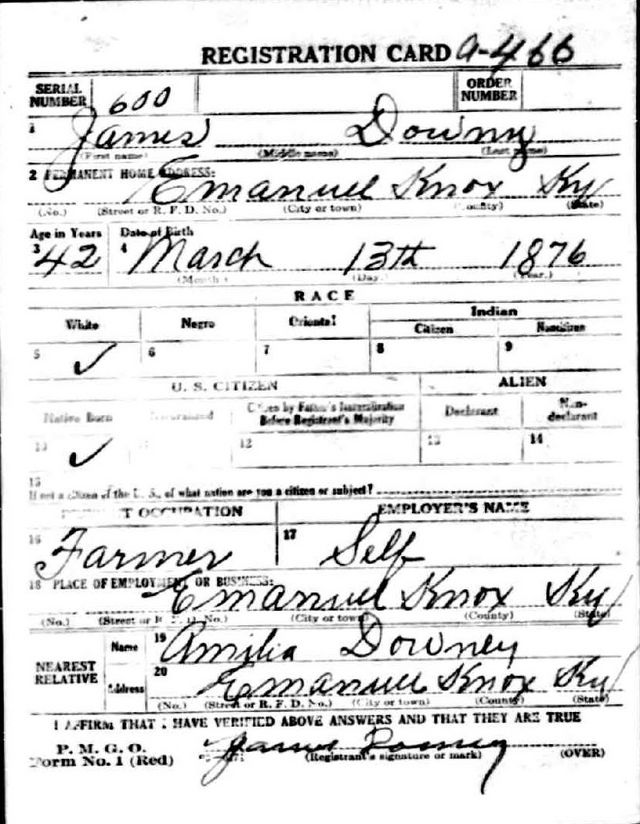 REGISTRATION CARD A-466
SERIAL NUMBER 600 ORDER NUMBER
1 James Downy
(First name) (Middle name) (Last name)
2 PERMANENT HOME ADDRESS:
Emanuel Knox Ky
(No.) (Street or R. F. D. No.) (City or town) (County) (State)
Age in Years Date of Birth
3 42 4 March 13th 1876
(Month) (Day) (Year.)
RACE
White Negro Oriental Indian
Citizen Noncitizen
5 ✓ 6 7 8 9
U. S. CITIZEN ALIEN
Native Born Naturalized Citizen by Father's Naturalization Before Registrant's Majority Declarant Non-declarant
10 ✓ 12 13 14
15
If not a citizen of the U. S., of what nation are you a citizen or subject?
T OCCUPATION EMPLOYER'S NAME
16 Farmer 17 Self
18 PLACE OF EMPLOYMENT OR BUSINESS:
Emanuel Knox Ky
(No.) (Street or R. F. D. No.) (City or town) (County) (State)
NEAREST RELATIVE
Name 19 Amilia Downey
Address 20 Emanuel Knox Ky
(No.) (Street or R. F. D. No.) (City or town) (County) (State)
I AFFIRM THAT I HAVE VERIFIED ABOVE ANSWERS AND THAT THEY ARE TRUE
P. M. G. O.
Form No. 1 (Red) James Downey
(Registrant's signature or mark) (OVER)